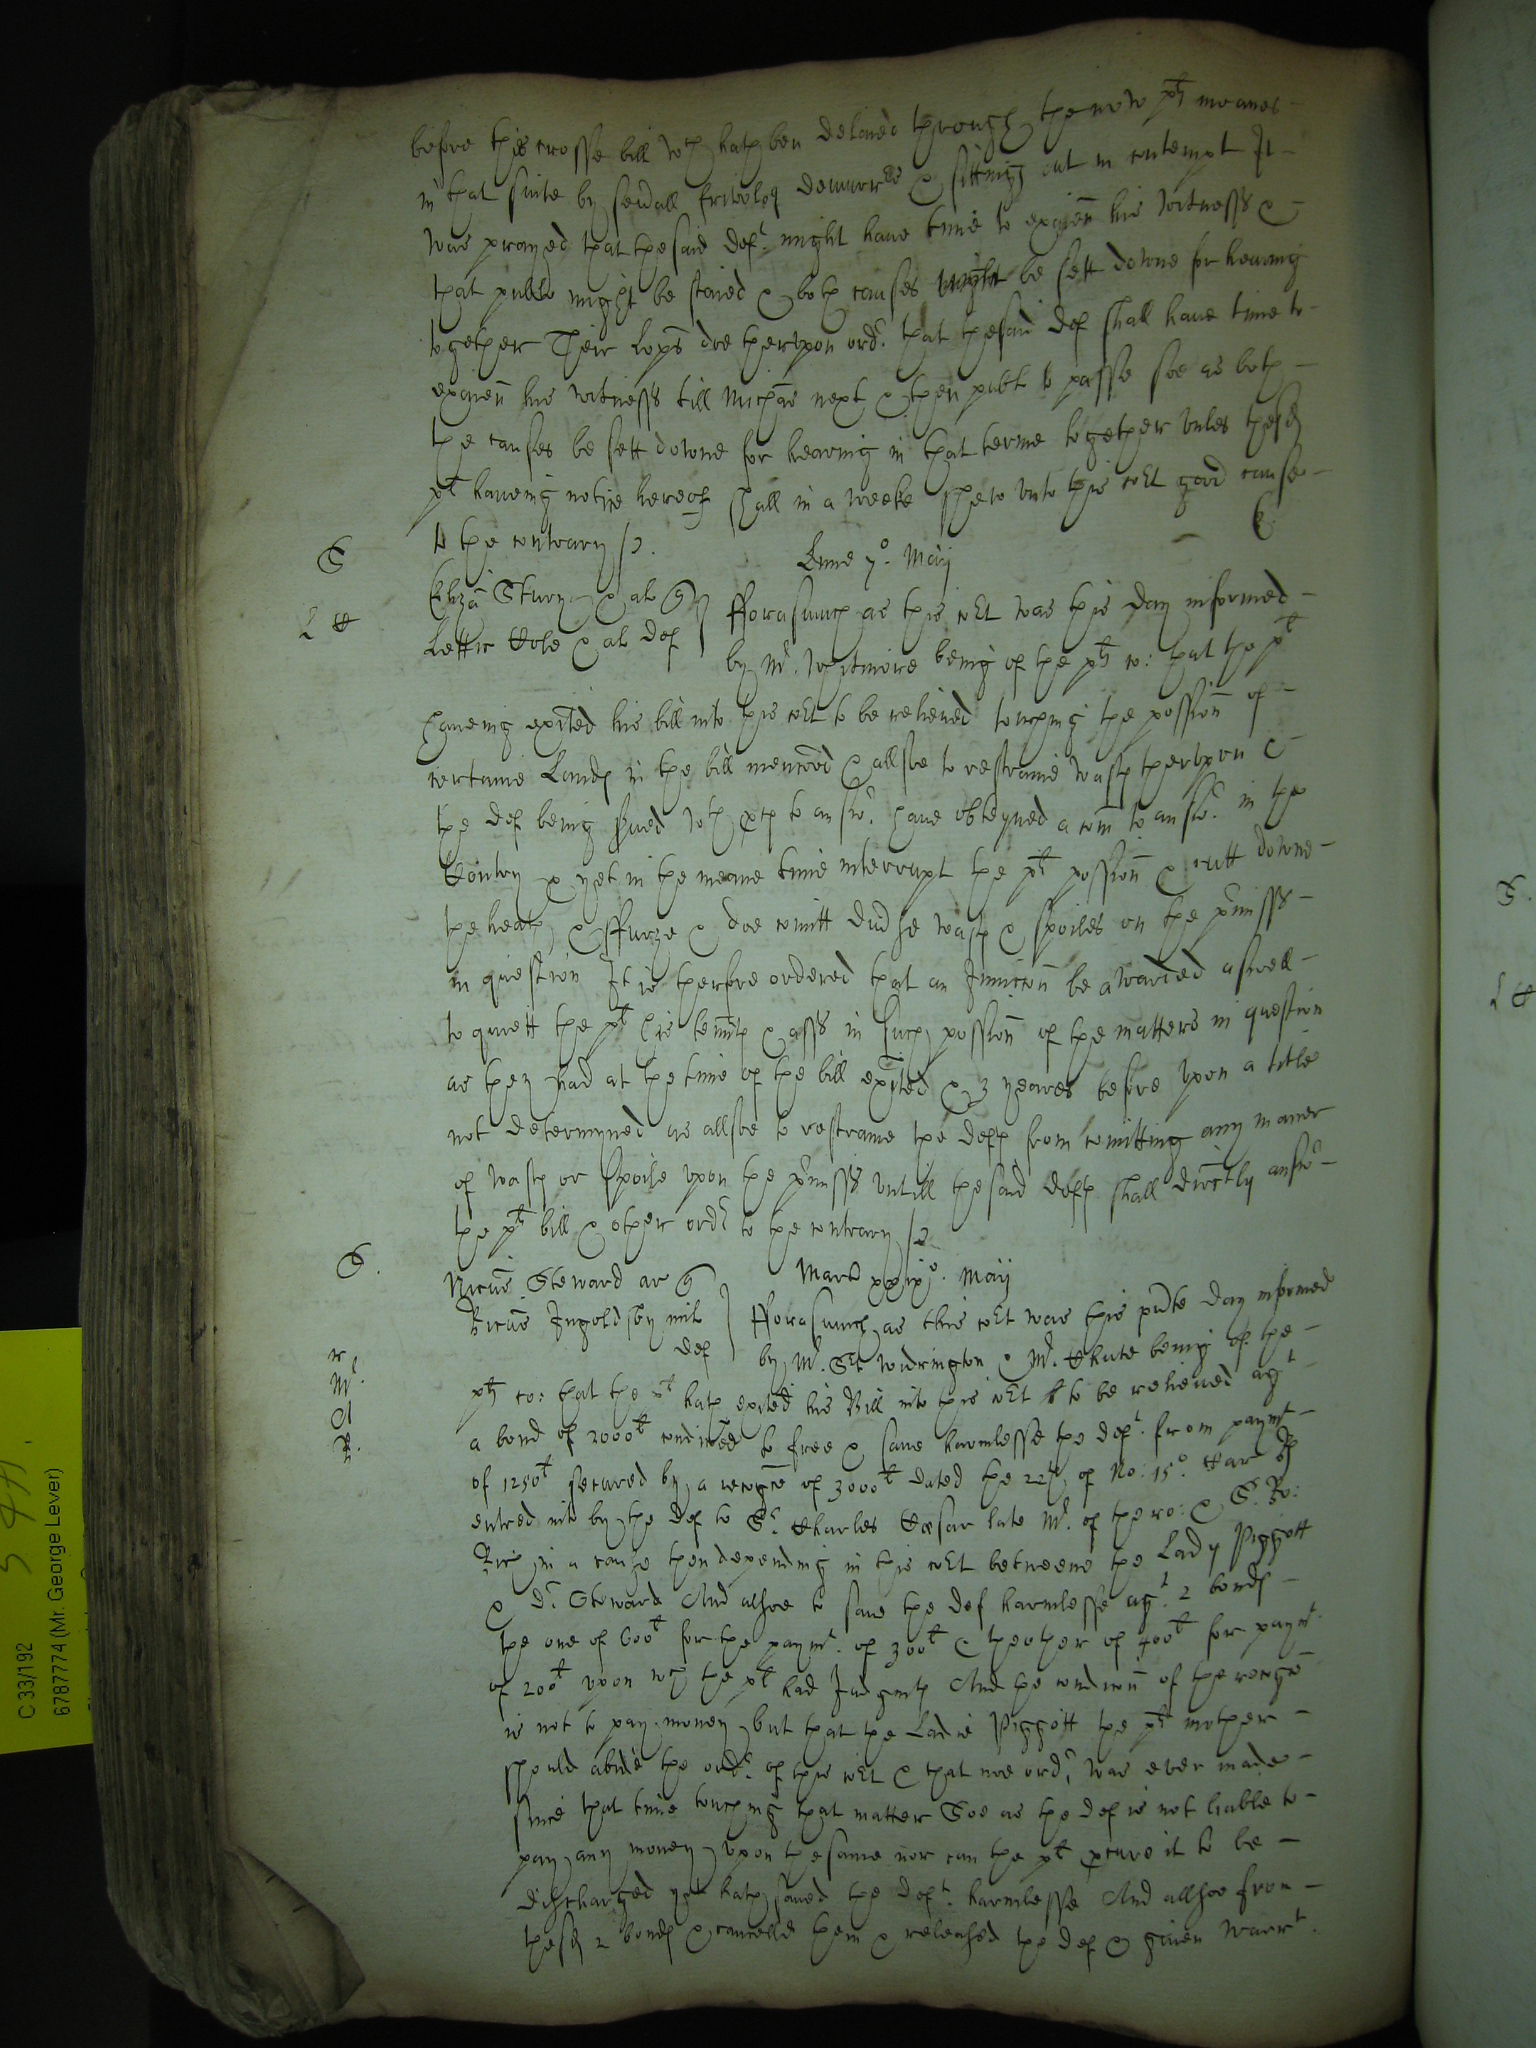 before this crosse bill wch hath ben delaied through the now plts meanes
in that suite by sevall frivolos demurrs & sitting out in contempt It
was prayed that the said deft. might have time to exaien his witnesss &
that publc might be staied & both causes might be sett downe for hearing
together Their Lopps doe therupon ordr. that the said def shall have time to
exaien his witnesss till Michas next & then publc to passe soe as both
the causes be sett downe for hearing in that terme together unles the sd
plt haveing notice hereof shall in a weeke shew unto this cort good cause
to the contrary
S Lune 7o. Maij
Eliza Sturry & al
L H Lettic Cole & al def
fforasmuch as this cort was this day informed
by Mr. Whitmore being of the plts co: that the plt
haveing exited his bill into this cort to be releived touching the possion of
certaine Lands in the bill menconed & allsoe to restraine wast therupon &
the def being served wth pces to answr. have obteyned a com to answr. in the
Contry & yet in the meane time interrupt the plts possion & cutt downe
the heath & ffurze & doe comitt divse wasts & spoiles on the prmisss
in question It is therfore ordered that an Iniunccon be awarded aswell
to quiett the plt his tennts & asss in such possion of the matters in question
as they had at the time of the bill exited & 3 yeares before upon a title
not determyned as allsoe to restraine the defts from comitting any maner
of wasts or spoile upon the prmisss untill the said defts shall directly answr
the plts bill & other ordr to the contrary
S. Marts xxixo. Maij
Nicus Steward ar
Ricus Ingoldsby mil
def
fforasmuch as this cort was this pnte day informed
by Mr. Sct Widrington & Mr. Chute being of the
plts co: that the plt hath exited his Bill into this cort to be releived agt
r
Mr.
A
R.
a bond of 2000l condiconed to free & save harmlesse the deft. from paymt
of 1250l secured by a recogce of 3000l dated the 22th of No: 15o. Car
entred into by the def to Sr. Charles Cæsar late Mr. of the ro: & Sr. Ro:
Rich in a cause then depending in this cort betweene the Lady Piggott
& Dr. Steward And alsoe to save the def harmlesse agt. 2 bonds
the one of 600l for the paymt. of 300l & the other of 400l for paymt
of 200l upon wch the plt had Judgmts And the condicon of the recogce
is not to pay money but that the Ladie Piggott the plts mother
should abide the ordr. of this cort & that noe ordr. was ever made
since that time touching that matter Soe as the def is not liable to
pay any money upon the same nor can the plt pcure it to be
discharged yet hath saved the deft. harmlesse And allsoe from
the sd 2 bonds & cancelld them & released the def & given warrt.
C 33/192
6787774 (Mr. George Lever)